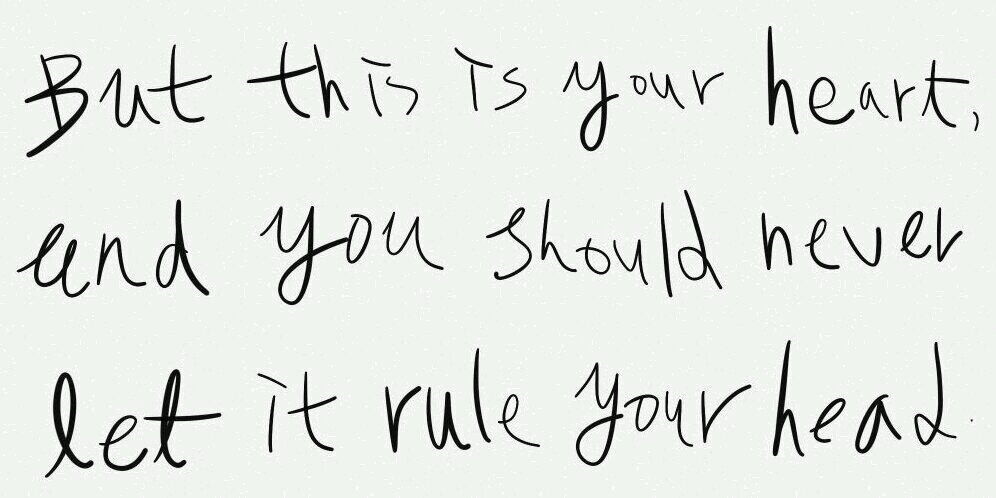 But this is your heart,
and you should never
let it rule your head.